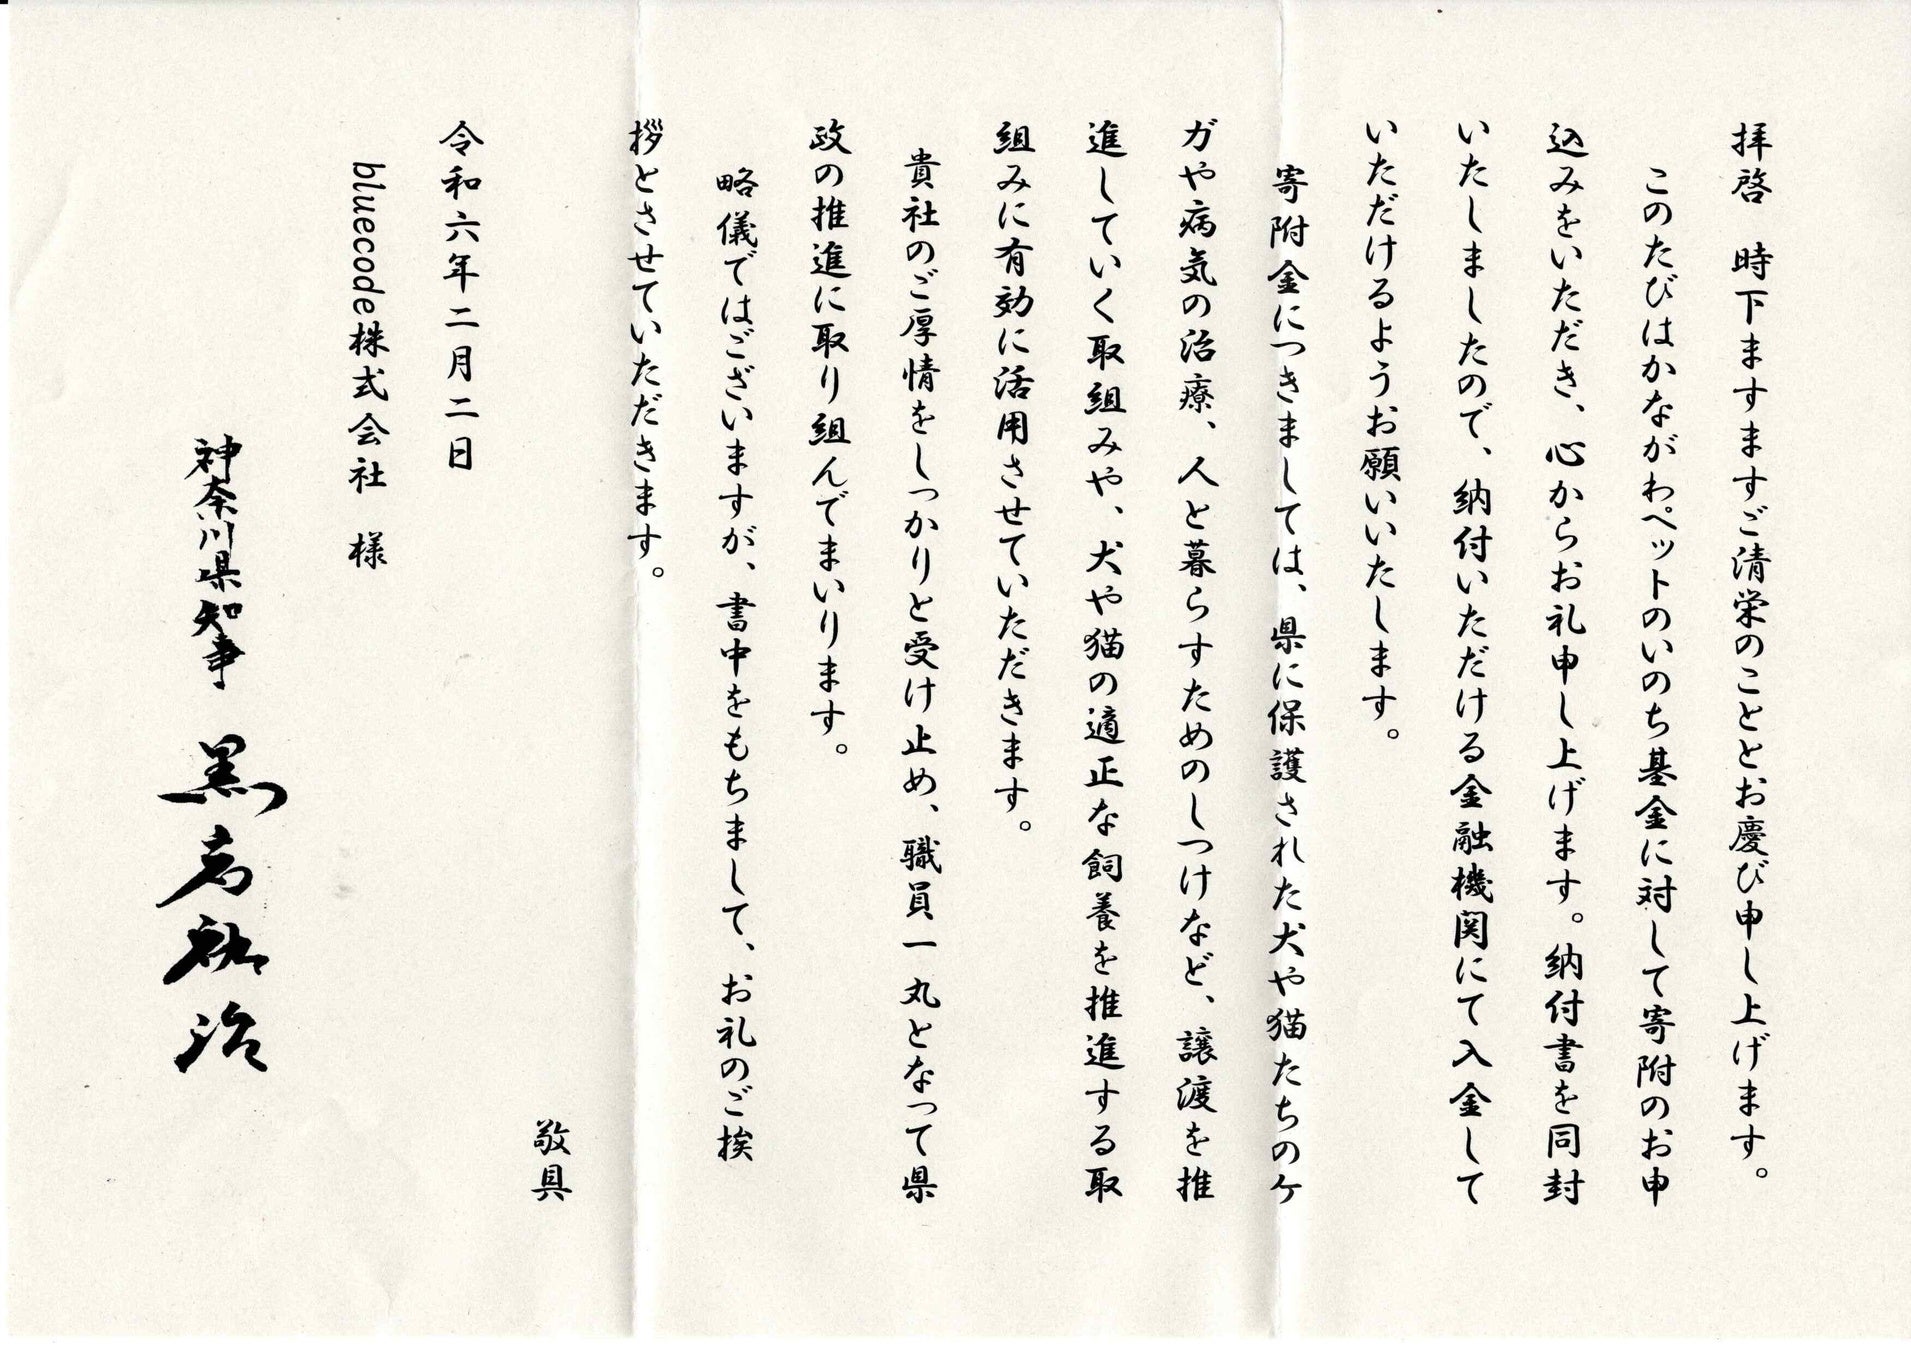 拝啓　時下ますますご清栄のこととお慶び申し上げます。
このたびはかながわペットのいのち基金に対して寄附のお申
込みをいただき、心からお礼申し上げます。納付書を同封
いたしましたので、納付いただける金融機関にて入金して
いただけるようお願いいたします。
寄附金につきましては、県に保護された犬や猫たちのケ
ガや病気の治療、人と暮らすためのしつけなど、譲渡を推
進していく取組みや、犬や猫の適正な飼養を推進する取
組みに有効に活用させていただきます。
貴社のご厚情をしっかりと受け止め、職員一丸となって県
政の推進に取り組んでまいります。
略儀ではございますが、書中をもちまして、お礼のご挨
拶とさせていただきます。
敬具
令和六年二月二日
bluecode株式会社　様
神奈川県知事　黒岩祐治